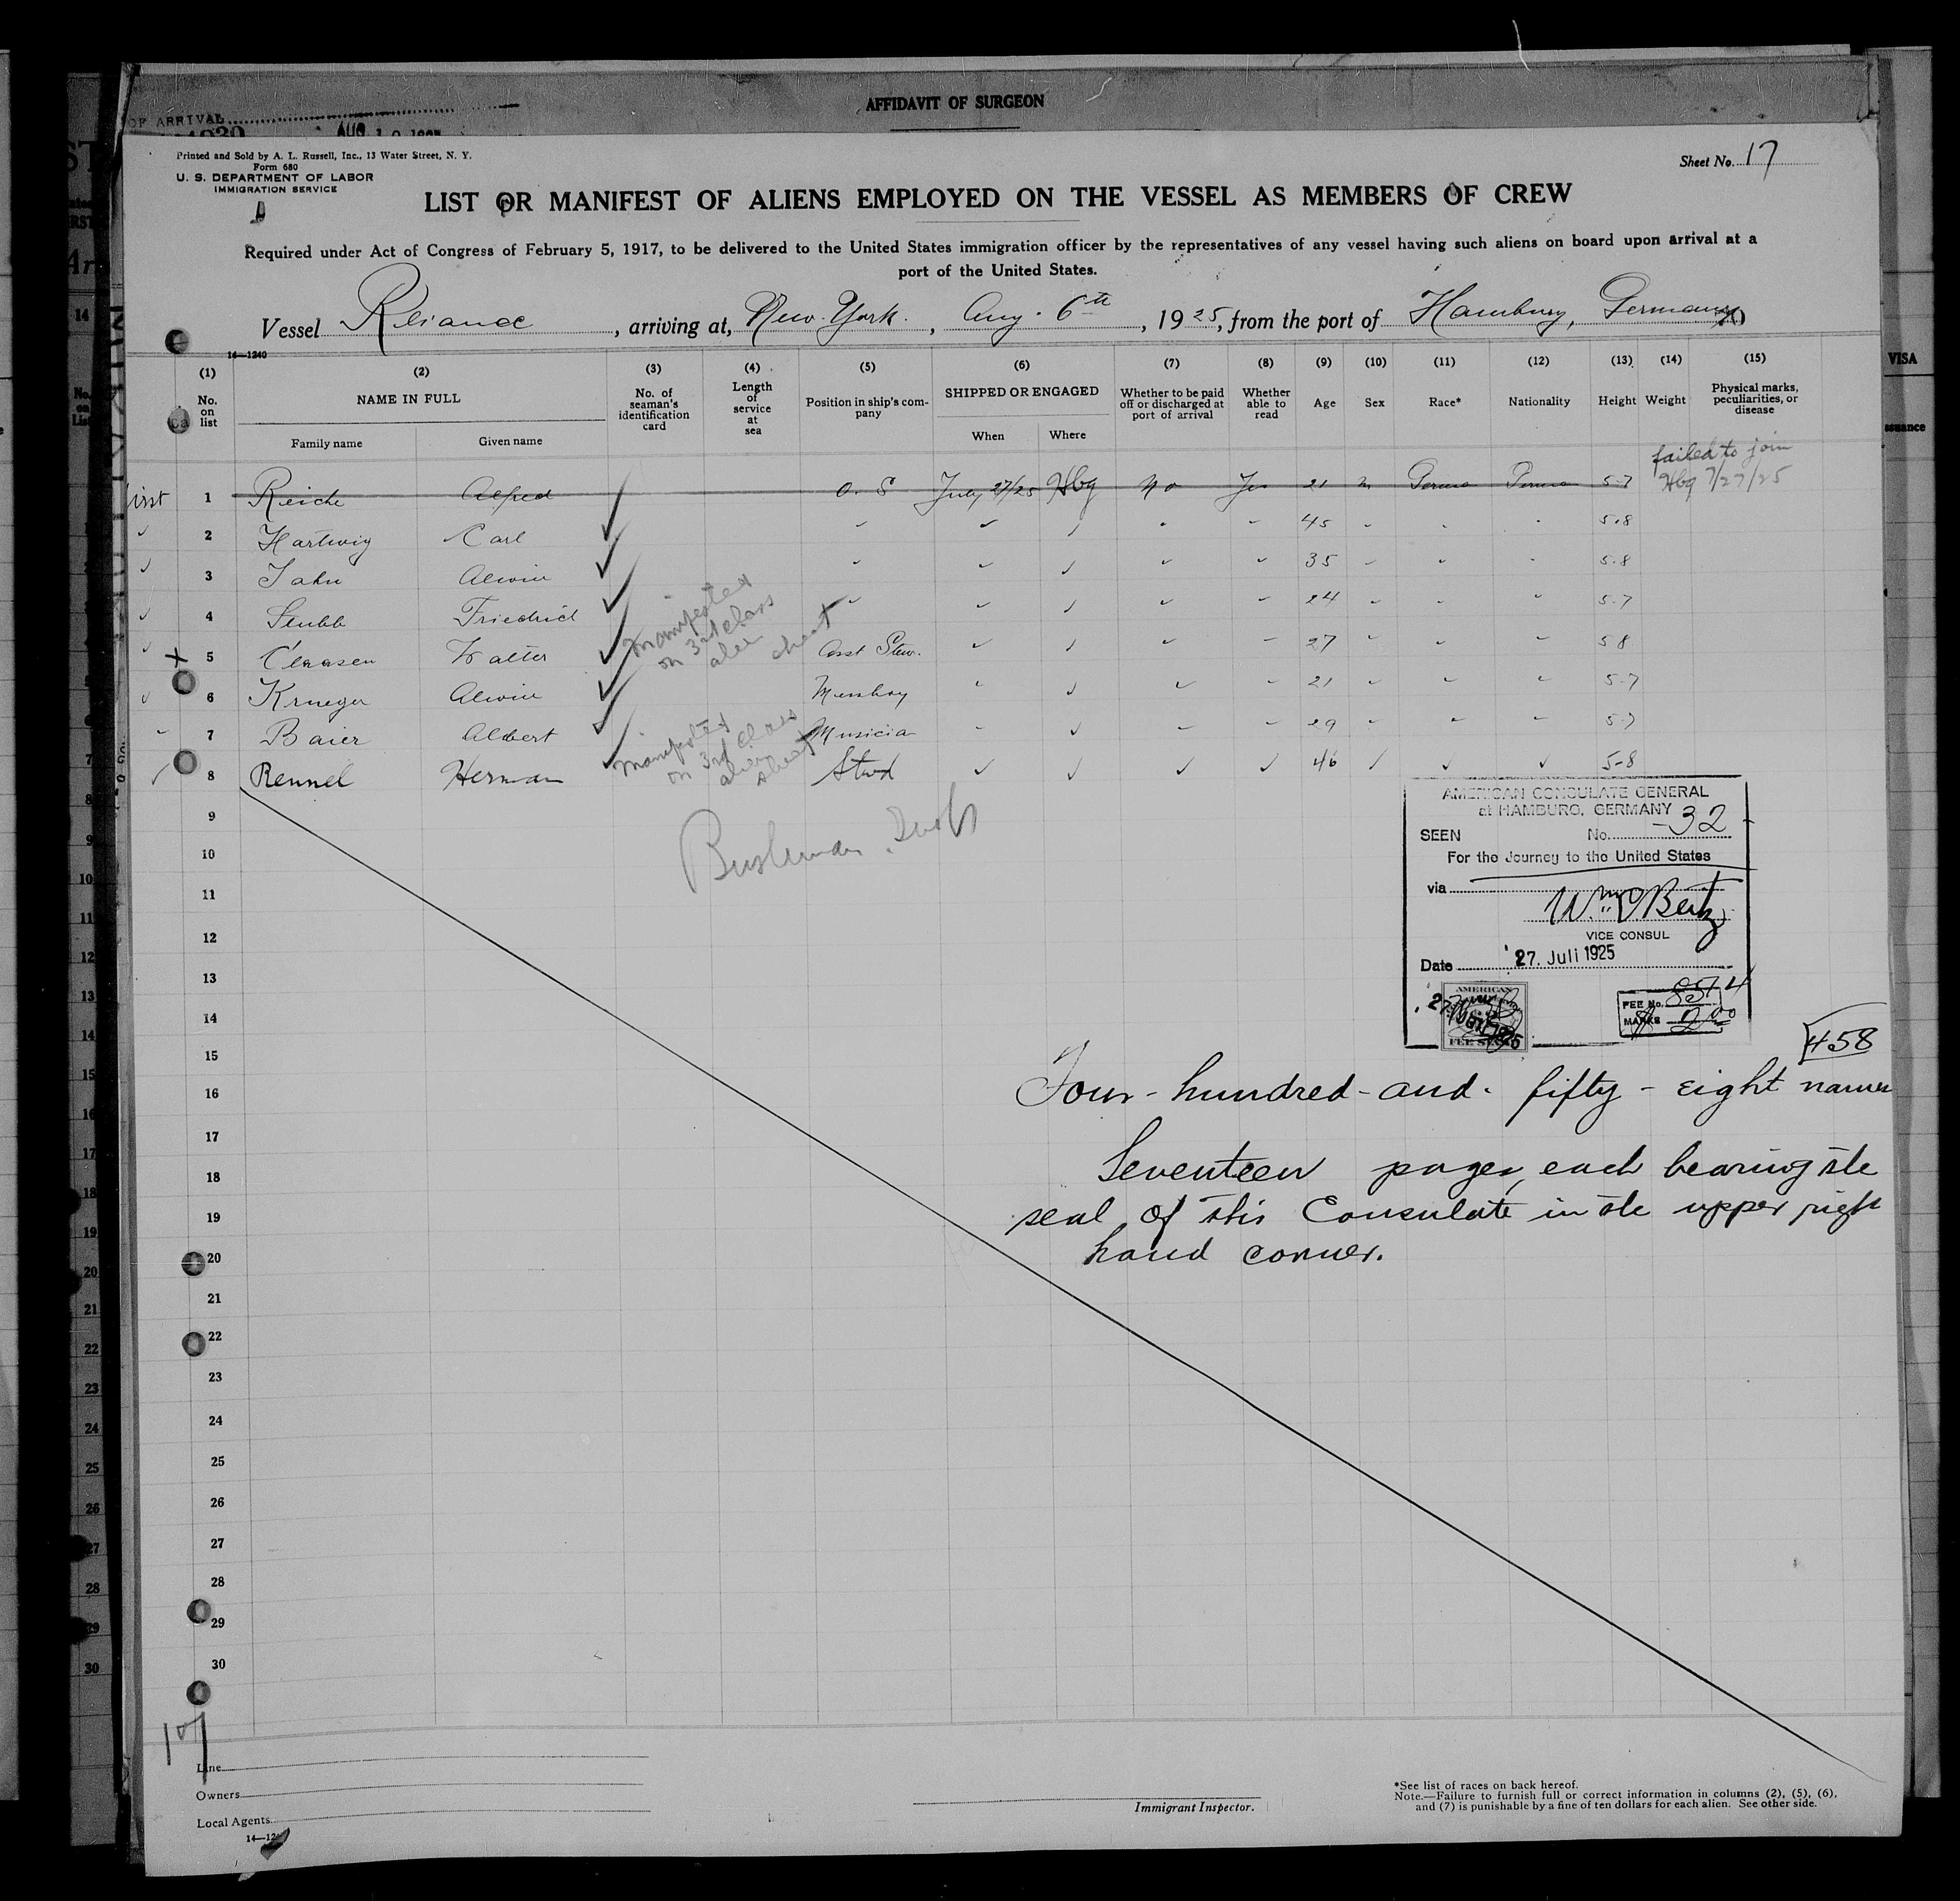 AFFIDAVIT OF SURGEON
OF ARRIVAL
AUG 10
Printed and Sold by A. L. Russell, Inc., 13 Water Street, N. Y.
Form 680
U. S. DEPARTMENT OF LABOR
IMMIGRATION SERVICE
Sheet No. 17
LIST OR MANIFEST OF ALIENS EMPLOYED ON THE VESSEL AS MEMBERS OF CREW
Required under Act of Congress of February 5, 1917, to be delivered to the United States immigration officer by the representatives of any vessel having such aliens on board upon arrival at a
port of the United States.
Vessel Reliance, arriving at, New York., Aug. 6th, 1925, from the port of Hamburg, Germany
14—1240
(1) (2) (3) (4) (5) (6) (7) (8) (9) (10) (11) (12) (13) (14) (15)
No. on list
NAME IN FULL
Family name
Given name
No. of seaman's identification card
Length of service at sea
Position in ship's company
SHIPPED OR ENGAGED
When
Where
Whether to be paid off or discharged at port of arrival
Whether able to read
Age
Sex
Race*
Nationality
Height
Weight
Physical marks, peculiarities, or disease
failed to join
Hbg 7/27/25
first 1 Reiche Alfred O. S July 27/25 Hbg No Yes 21 m German German 5-7
✓ 2 Hartwig Carl ✓ 45 5.8
✓ 3 Jahn Alwin ✓ 35 5.8
✓ 4 Stubb Friedrich ✓ 24 5-7
✓ x 5 Claasen Walter ✓ Asst Stew. 27 5 8
✓ 6 Krueger Alwin ✓ Messboy 21 5-7
7 Baier Albert ✓ Musician 29 5-7
✓ 8 Rennel Herman ✓ Stwd ✓ ✓ ✓ ✓ 46 ✓ ✓ ✓ 5-8
Manifested
on 3rd class
alien sheet
Manifested
on 3rd class
alien
sheet
9
10
11
12
13
14
15
16
17
18
19
20
21
22
23
24
25
26
27
28
29
30
AMERICAN CONSULATE GENERAL
at HAMBURG, GERMANY
SEEN No. 32
For the Journey to the United States
via
VICE CONSUL
Date 27. Juli 1925
AMERICAN
FEE No. 8574
MARKS
458
Four-hundred-and-fifty-eight names
Seventeen pages, each bearing the
seal of this Consulate in the upper right
hand corner.
17
Line
Owners
Local Agents
Immigrant Inspector.
*See list of races on back hereof.
Note.—Failure to furnish full or correct information in columns (2), (5), (6),
and (7) is punishable by a fine of ten dollars for each alien. See other side.
VISA